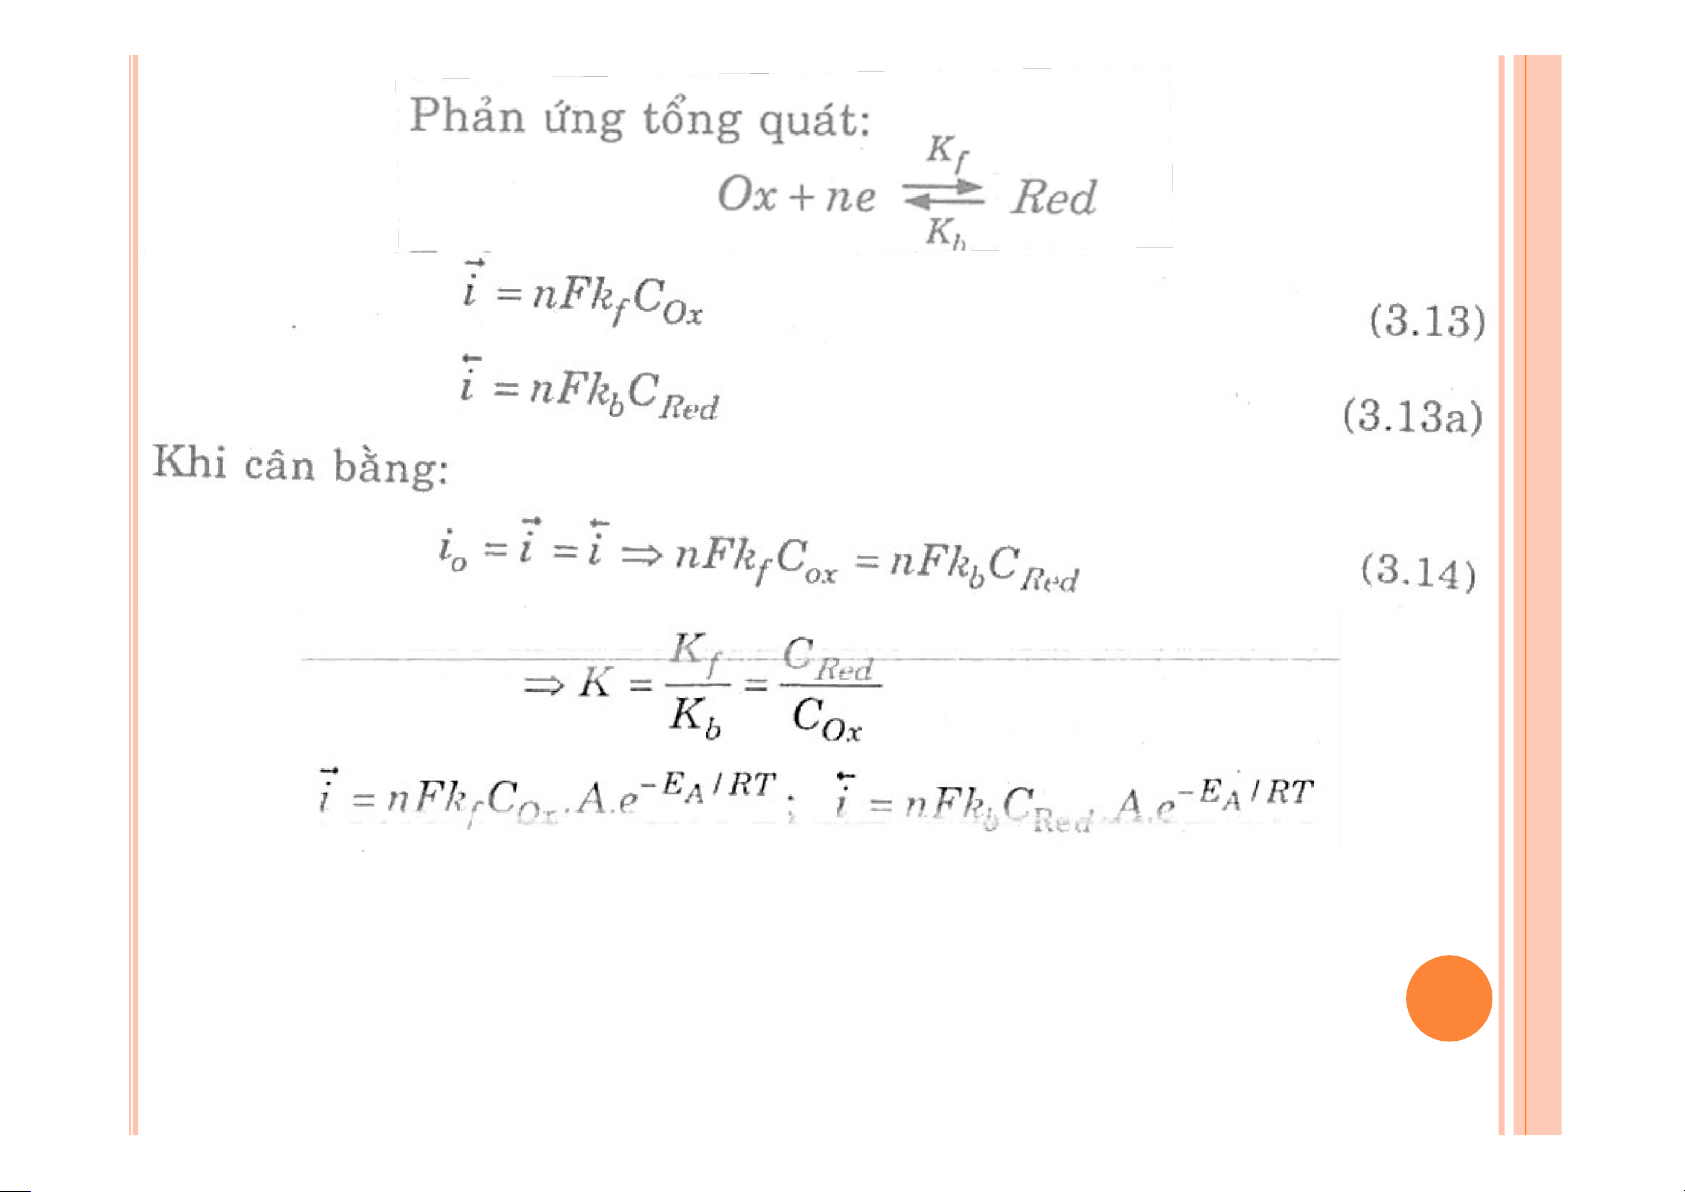 Phản ứng tổng quát:
K_f
Ox + ne ⇌ Red
K_b
\vec{i} = nFk_fC_{Ox} (3.13)
\overleftarrow{i} = nFk_bC_{Red} (3.13a)
Khi cân bằng:
i_o = \vec{i} = \overleftarrow{i} ⇒ nFk_fC_{ox} = nFk_bC_{Red} (3.14)
⇒ K = \frac{K_f}{K_b} = \frac{C_{Red}}{C_{Ox}}
\vec{i} = nFk_fC_{Ox}.A.e^{-E_A/RT}; \overleftarrow{i} = nFk_bC_{Red}.A.e^{-E_A/RT}